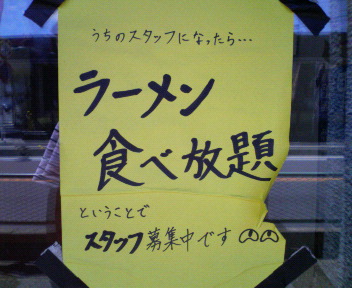 うちのスタッフになったら…
ラーメン
食べ放題
ということで
スタッフ募集中です